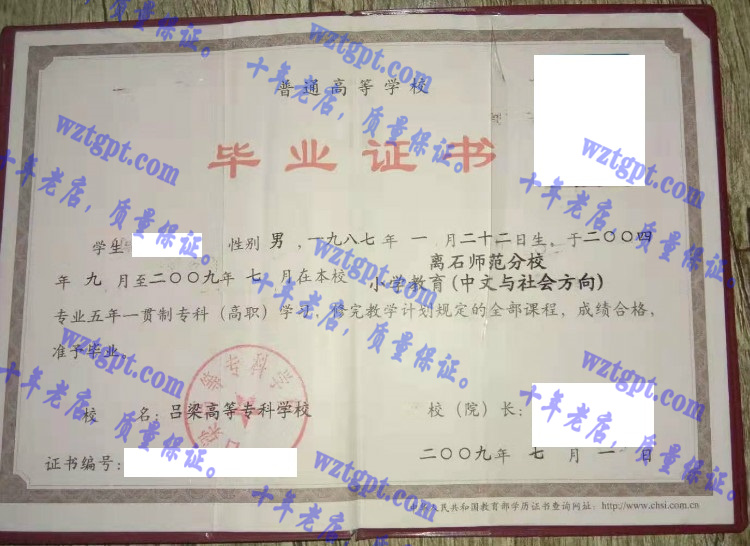 普通高等学校
毕业证书
学生 性别 男 ,一九八七年 一 月二十二日生,于二〇〇四
年 九 月至二〇〇九年 七 月在本校 离石师范分校
小学教育(中文与社会方向)
专业五年一贯制专科(高职)学习,修完教学计划规定的全部课程,成绩合格,
准予毕业。
校 名:吕梁高等专科学校 校(院)长:
证书编号: 二〇〇九年 七 月 一 日
中华人民共和国教育部学历证书查询网址:http://www.chsi.com.cn
wztgpt.com
十年老店,质量保证。